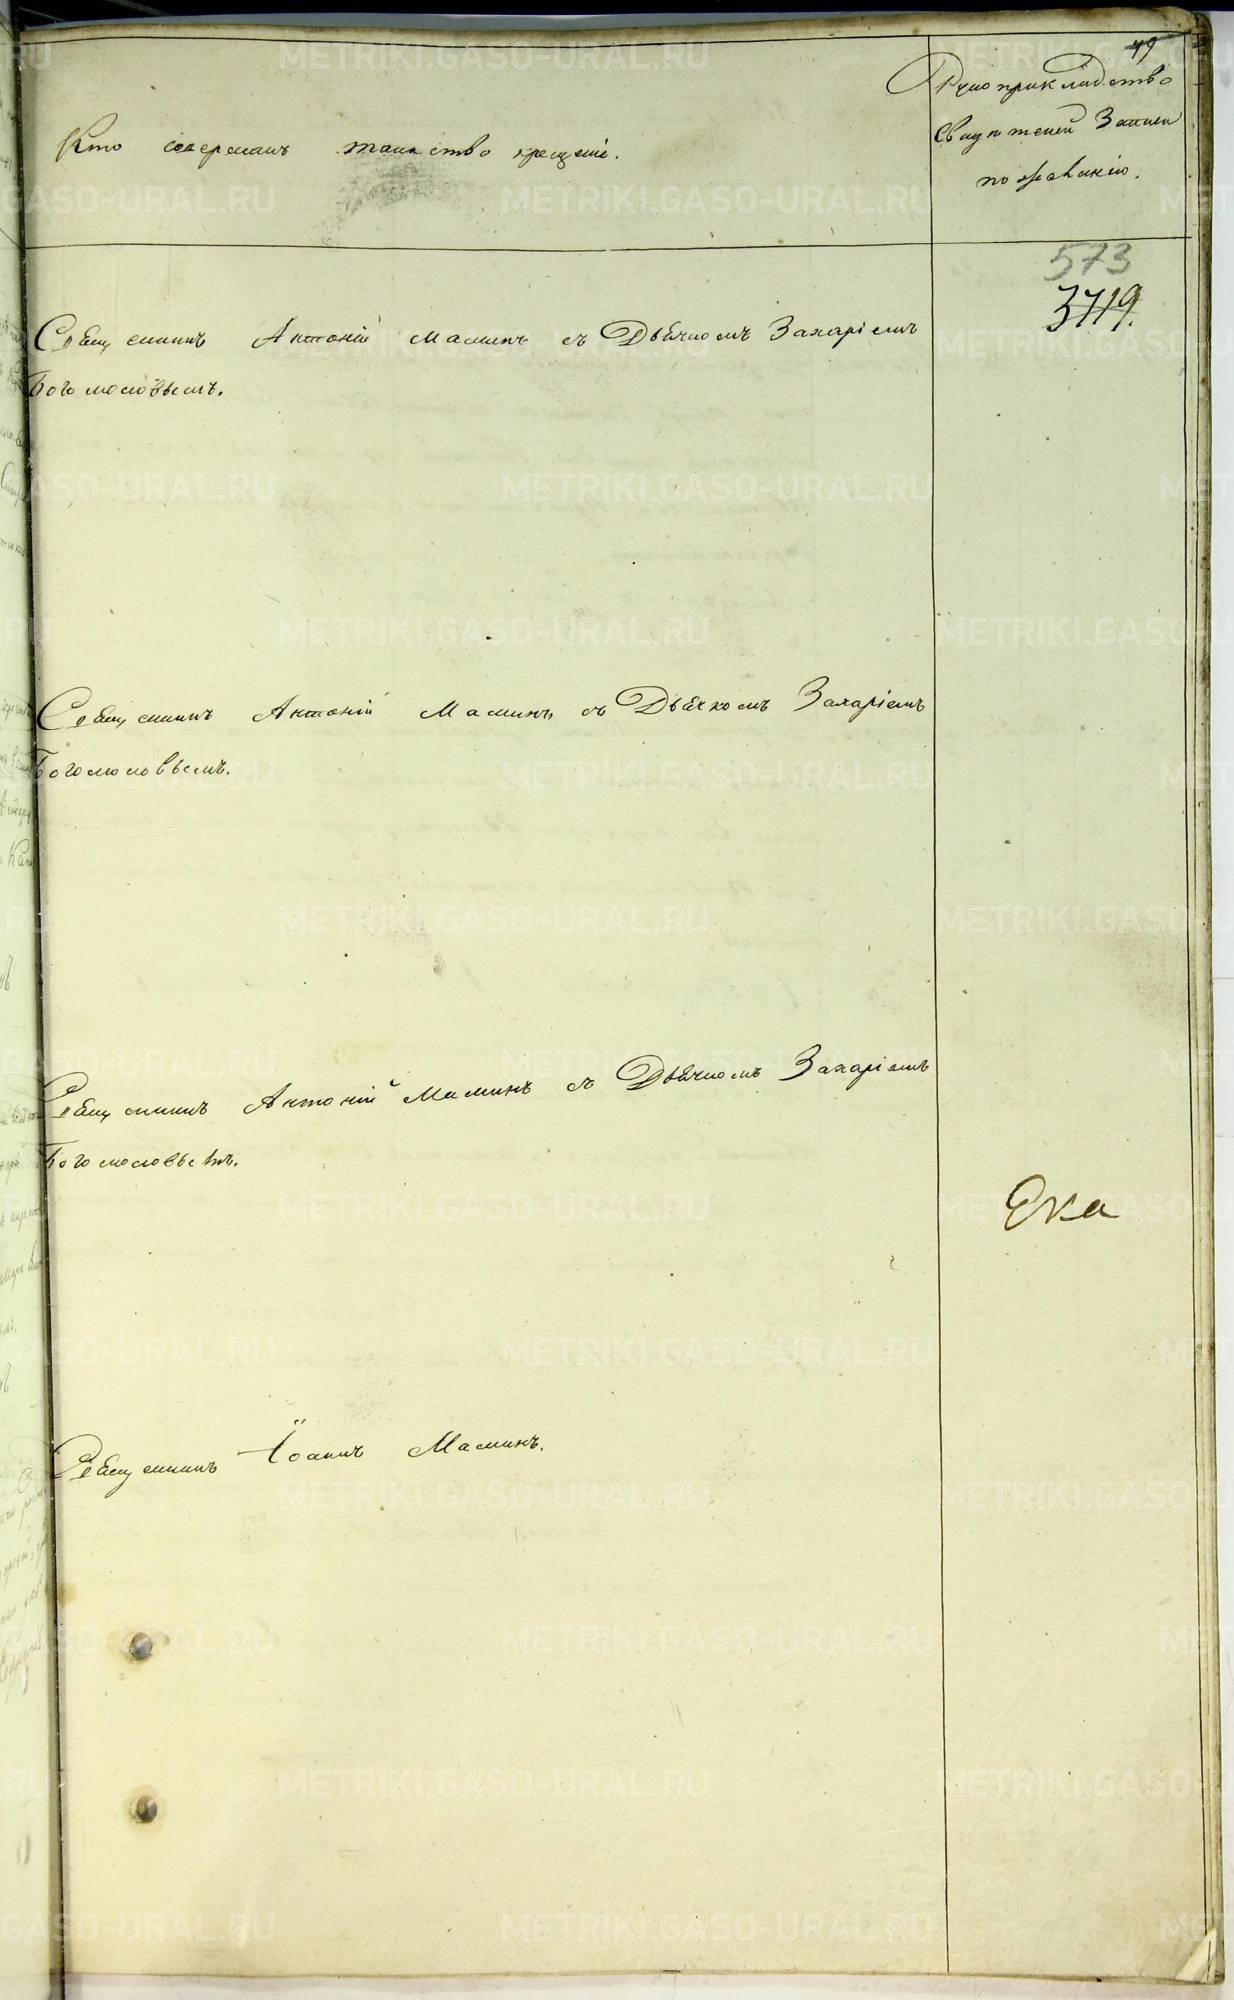 49
Рукоприкладство
Кто совершалъ таинство крещенія.
Свидѣтелей Записи
по желанію.
573
3719.
Священникъ Антоній Маминъ съ Дьячкомъ Захаріемъ
Богомоловымъ.
Священникъ Антоній Маминъ съ Дьячкомъ Захаріемъ
Богомоловымъ.
Священникъ Антоній Маминъ съ Дьячкомъ Захаріемъ
Богомоловымъ.
Ека
Священникъ Іоаннъ Маминъ.
METRIKI.GASO-URAL.RU